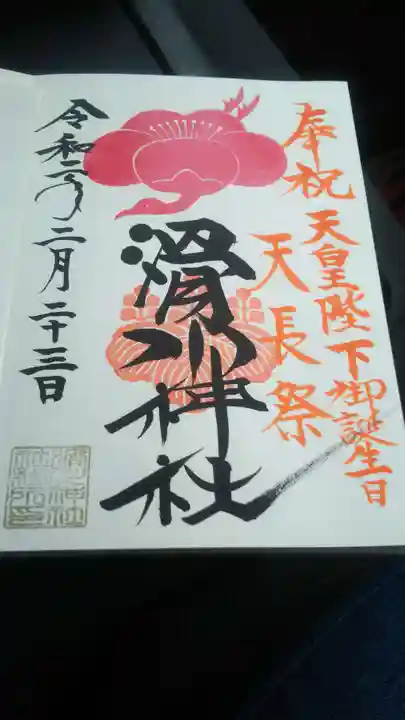 奉祝 天皇陛下御誕生日
天長祭
滑川神社
令和二年二月二十三日